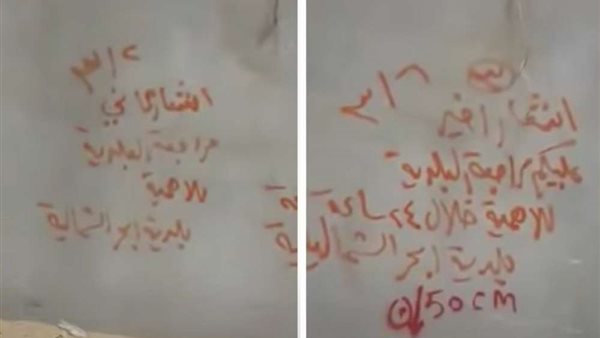 ٣/٢
اشعار ثاني
مراجعة البلدية
للاهمية
بلدية ابحر الشمالية
٣/٦
اشعار اخير
عليكم مراجعة البلدية
للاهمية خلال ٢٤ ساعة
بلدية ابحر الشمالية
50cm